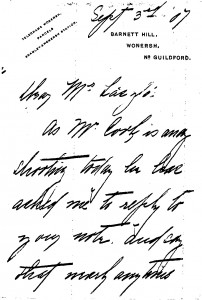 Sept 3rd 07
TELEGRAMS WONERSH.
PARCELS
BRAMLEY & WONERSH STATION.
BARNETT HILL,
WONERSH,
Nr GUILDFORD.
Dear Mr László:
As Mr Cook is away
shooting today he has
asked me to reply to
your note. And say
that nearly anytime